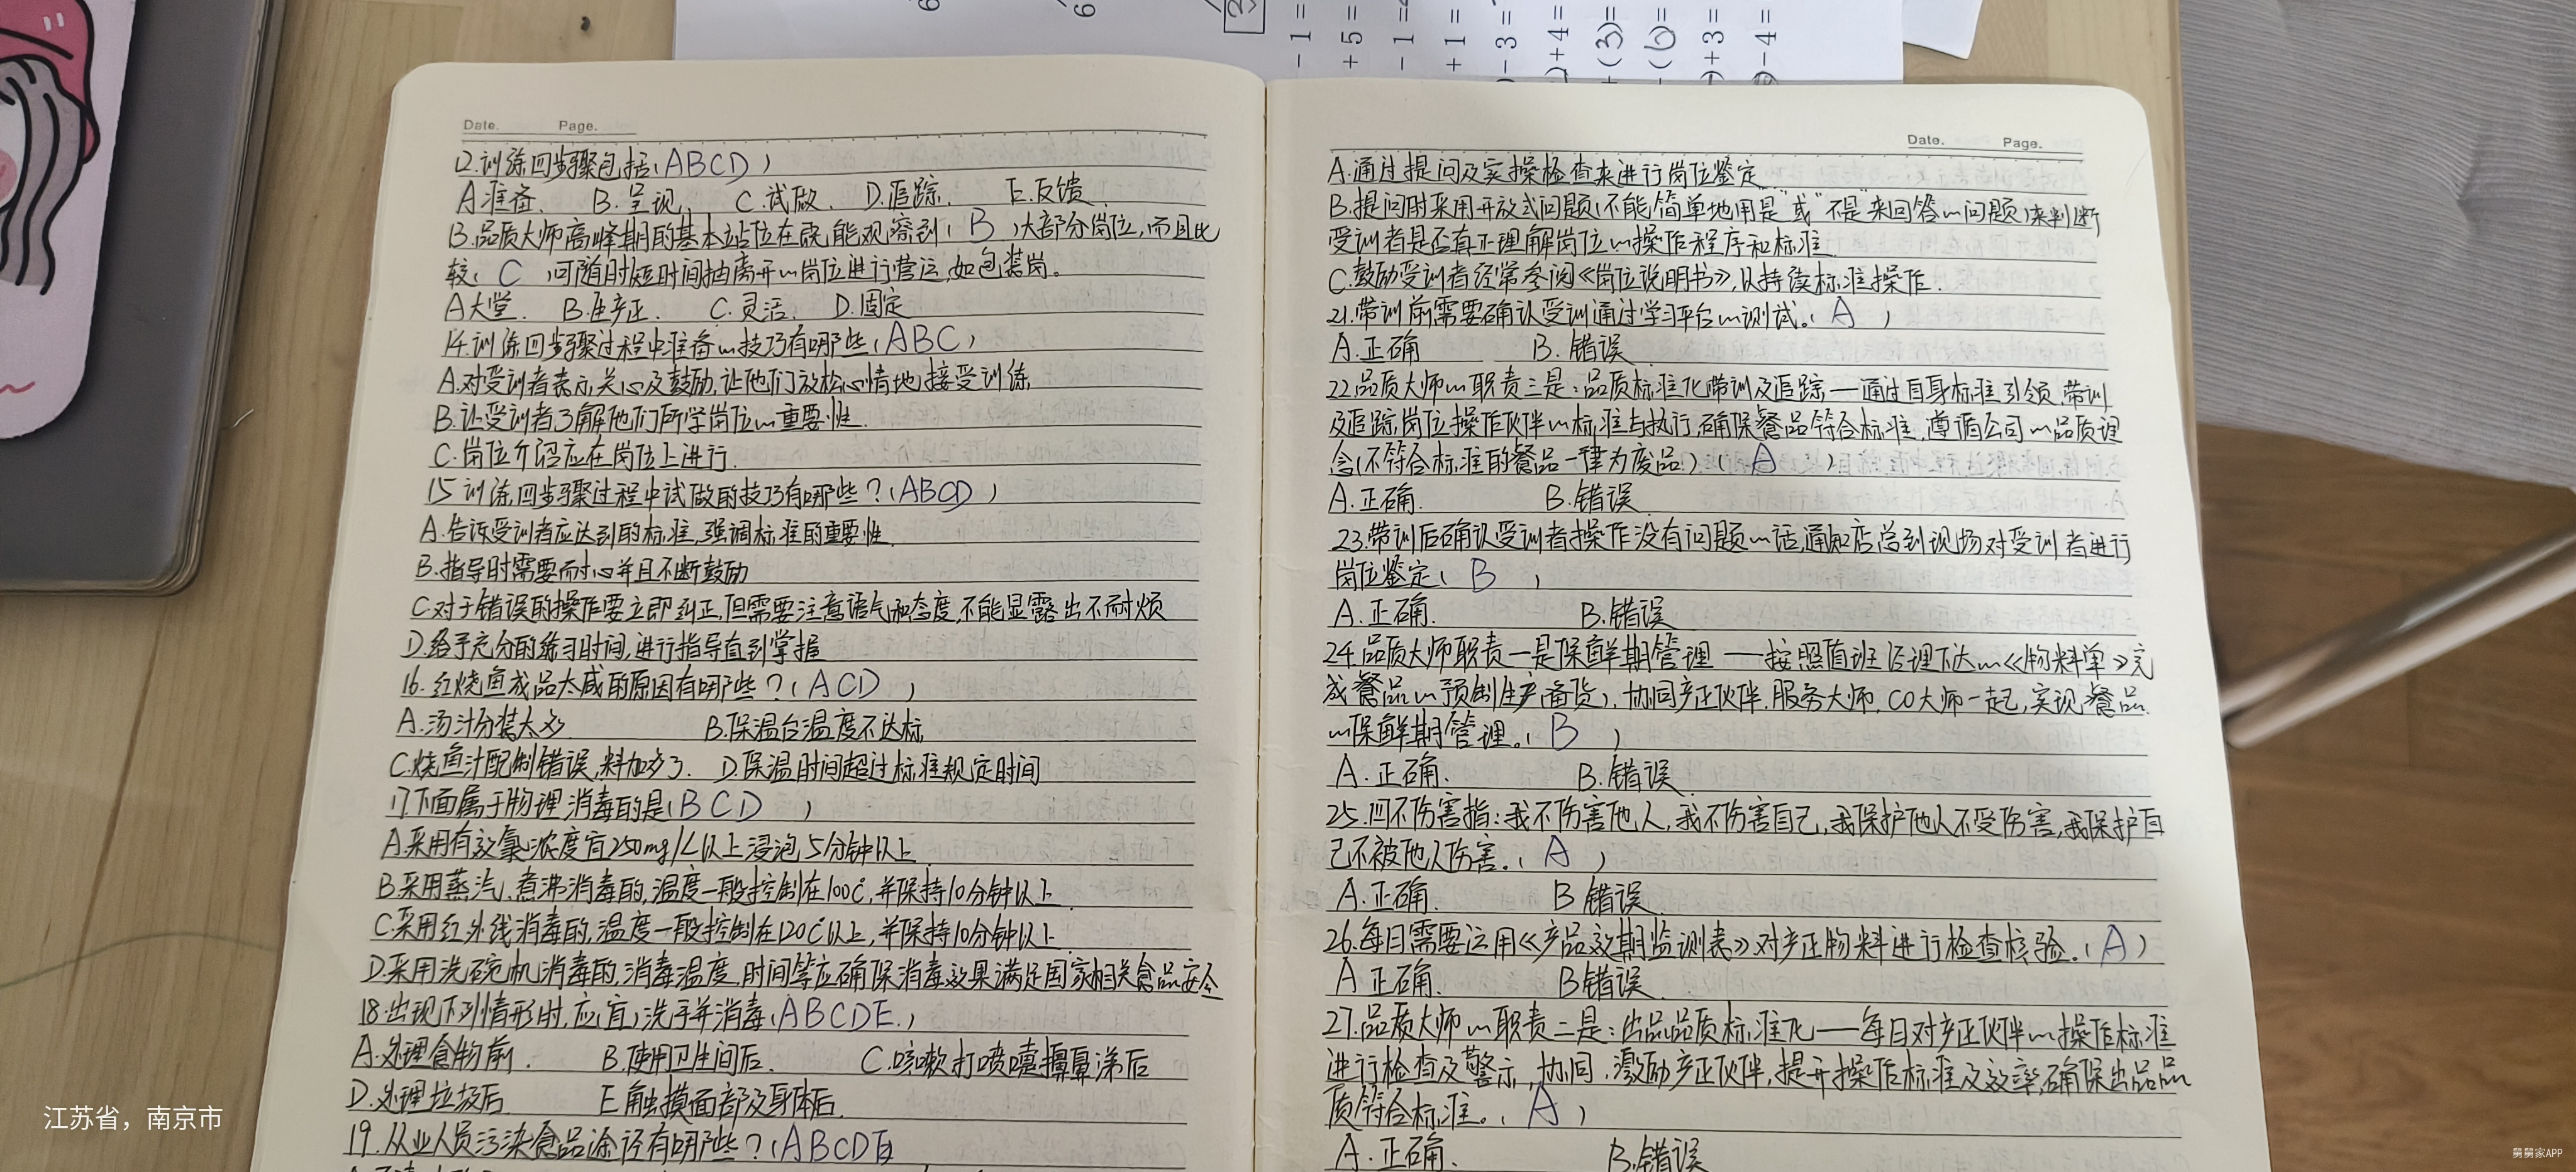 Date. Page.
12.训练四步骤包括(ABCD)
A准备、 B.呈现、 C.试做、 D.追踪、 E.反馈
13.品质大师高峰期的基本站位在既能观察到(B)大部分岗位,而且比
较(C)可随时短时间抽离开的岗位进行营运,如包装岗。
A大堂、 B.生产正、 C.灵活、 D.固定
14.训练四步骤过程中准备的技巧有哪些(ABC)
A.对受训者表示关心及鼓励,让他们放松心情地接受训练
B.让受训者了解他们所学岗位的重要性.
C.岗位介绍应在岗位上进行.
15训练四步骤过程中试做的技巧有哪些?(ABCD)
A.告诉受训者应达到的标准,强调标准的重要性
B.指导时需要耐心并且不断鼓励
C对于错误的操作要立即纠正,但需要注意语气和态度,不能显露出不耐烦
D.给予充分的练习时间,进行指导直到掌握
16.红烧鱼成品太咸的原因有哪些?(ACD)
A.汤汁分装太多 B.保温台温度不达标
C.烧鱼汁配制错误,料加多了. D.保温时间超过标准规定时间
17.下面属于物理消毒的是(BCD)
A采用有效氯浓度宜250mg/L以上浸泡5分钟以上
B采用蒸汽、煮沸消毒的,温度一般控制在100℃,并保持10分钟以上
C采用红外线消毒的,温度一般控制在120℃以上,并保持10分钟以上
D.采用洗碗机消毒的,消毒温度、时间等应确保消毒效果满足国家相关食品安全
18.出现下列情形时,应(宜)洗手并消毒(ABCDE.)
A.处理食物前. B.使用卫生间后. C.咳嗽打喷嚏擤鼻涕后
D.处理垃圾后 E触摸面部及身体后.
19.从业人员污染食品途径有哪些?(ABCDE
Date. Page.
A.通过提问及实操检查来进行岗位鉴定
B.提问时采用开放式问题(不能简单地用"是"或"不是"来回答的问题)来判断
受训者是否真正理解岗位的操作程序和标准.
C.鼓励受训者经常参阅《岗位说明书》,以持续标准操作.
21.带训前需要确认受训通过学习平台的测试。(A)
A.正确 B.错误
22.品质大师的职责三是:品质标准化带训及追踪——通过自身标准引领、带训
及追踪岗位操作伙伴的标准与执行,确保餐品符合标准,遵循公司的品质理
念(不符合标准的餐品一律为废品)(A)
A.正确. B.错误
23.带训后确认受训者操作没有问题的话,通知店总到现场对受训者进行
岗位鉴定(B)
A.正确. B.错误
24.品质大师职责一是保鲜期管理——按照值班经理下达的《物料单》完
成餐品的预制生产(备货),协同产正伙伴,服务大师,CO大师一起,实现餐品
的保鲜期管理。(B)
A.正确. B.错误
25.四不伤害指:我不伤害他人,我不伤害自己,我保护他人不受伤害,我保护自
己不被他人伤害。(A)
A.正确. B错误
26.每日需要运用《产品效期监测表》对产正物料进行检查核验。(A)
A正确. B错误
27.品质大师的职责二是:出品品质标准化——每日对产正伙伴的操作标准
进行检查及警示,协同、激励产正伙伴,提升操作标准及效率,确保出品品
质符合标准。(A)
A.正确、 B.错误
-1=
+5=
-1=
+1=
-3=
)+4=
+(3)=
-(6)=
)+3=
)-4=
江苏省，南京市
舅舅家APP